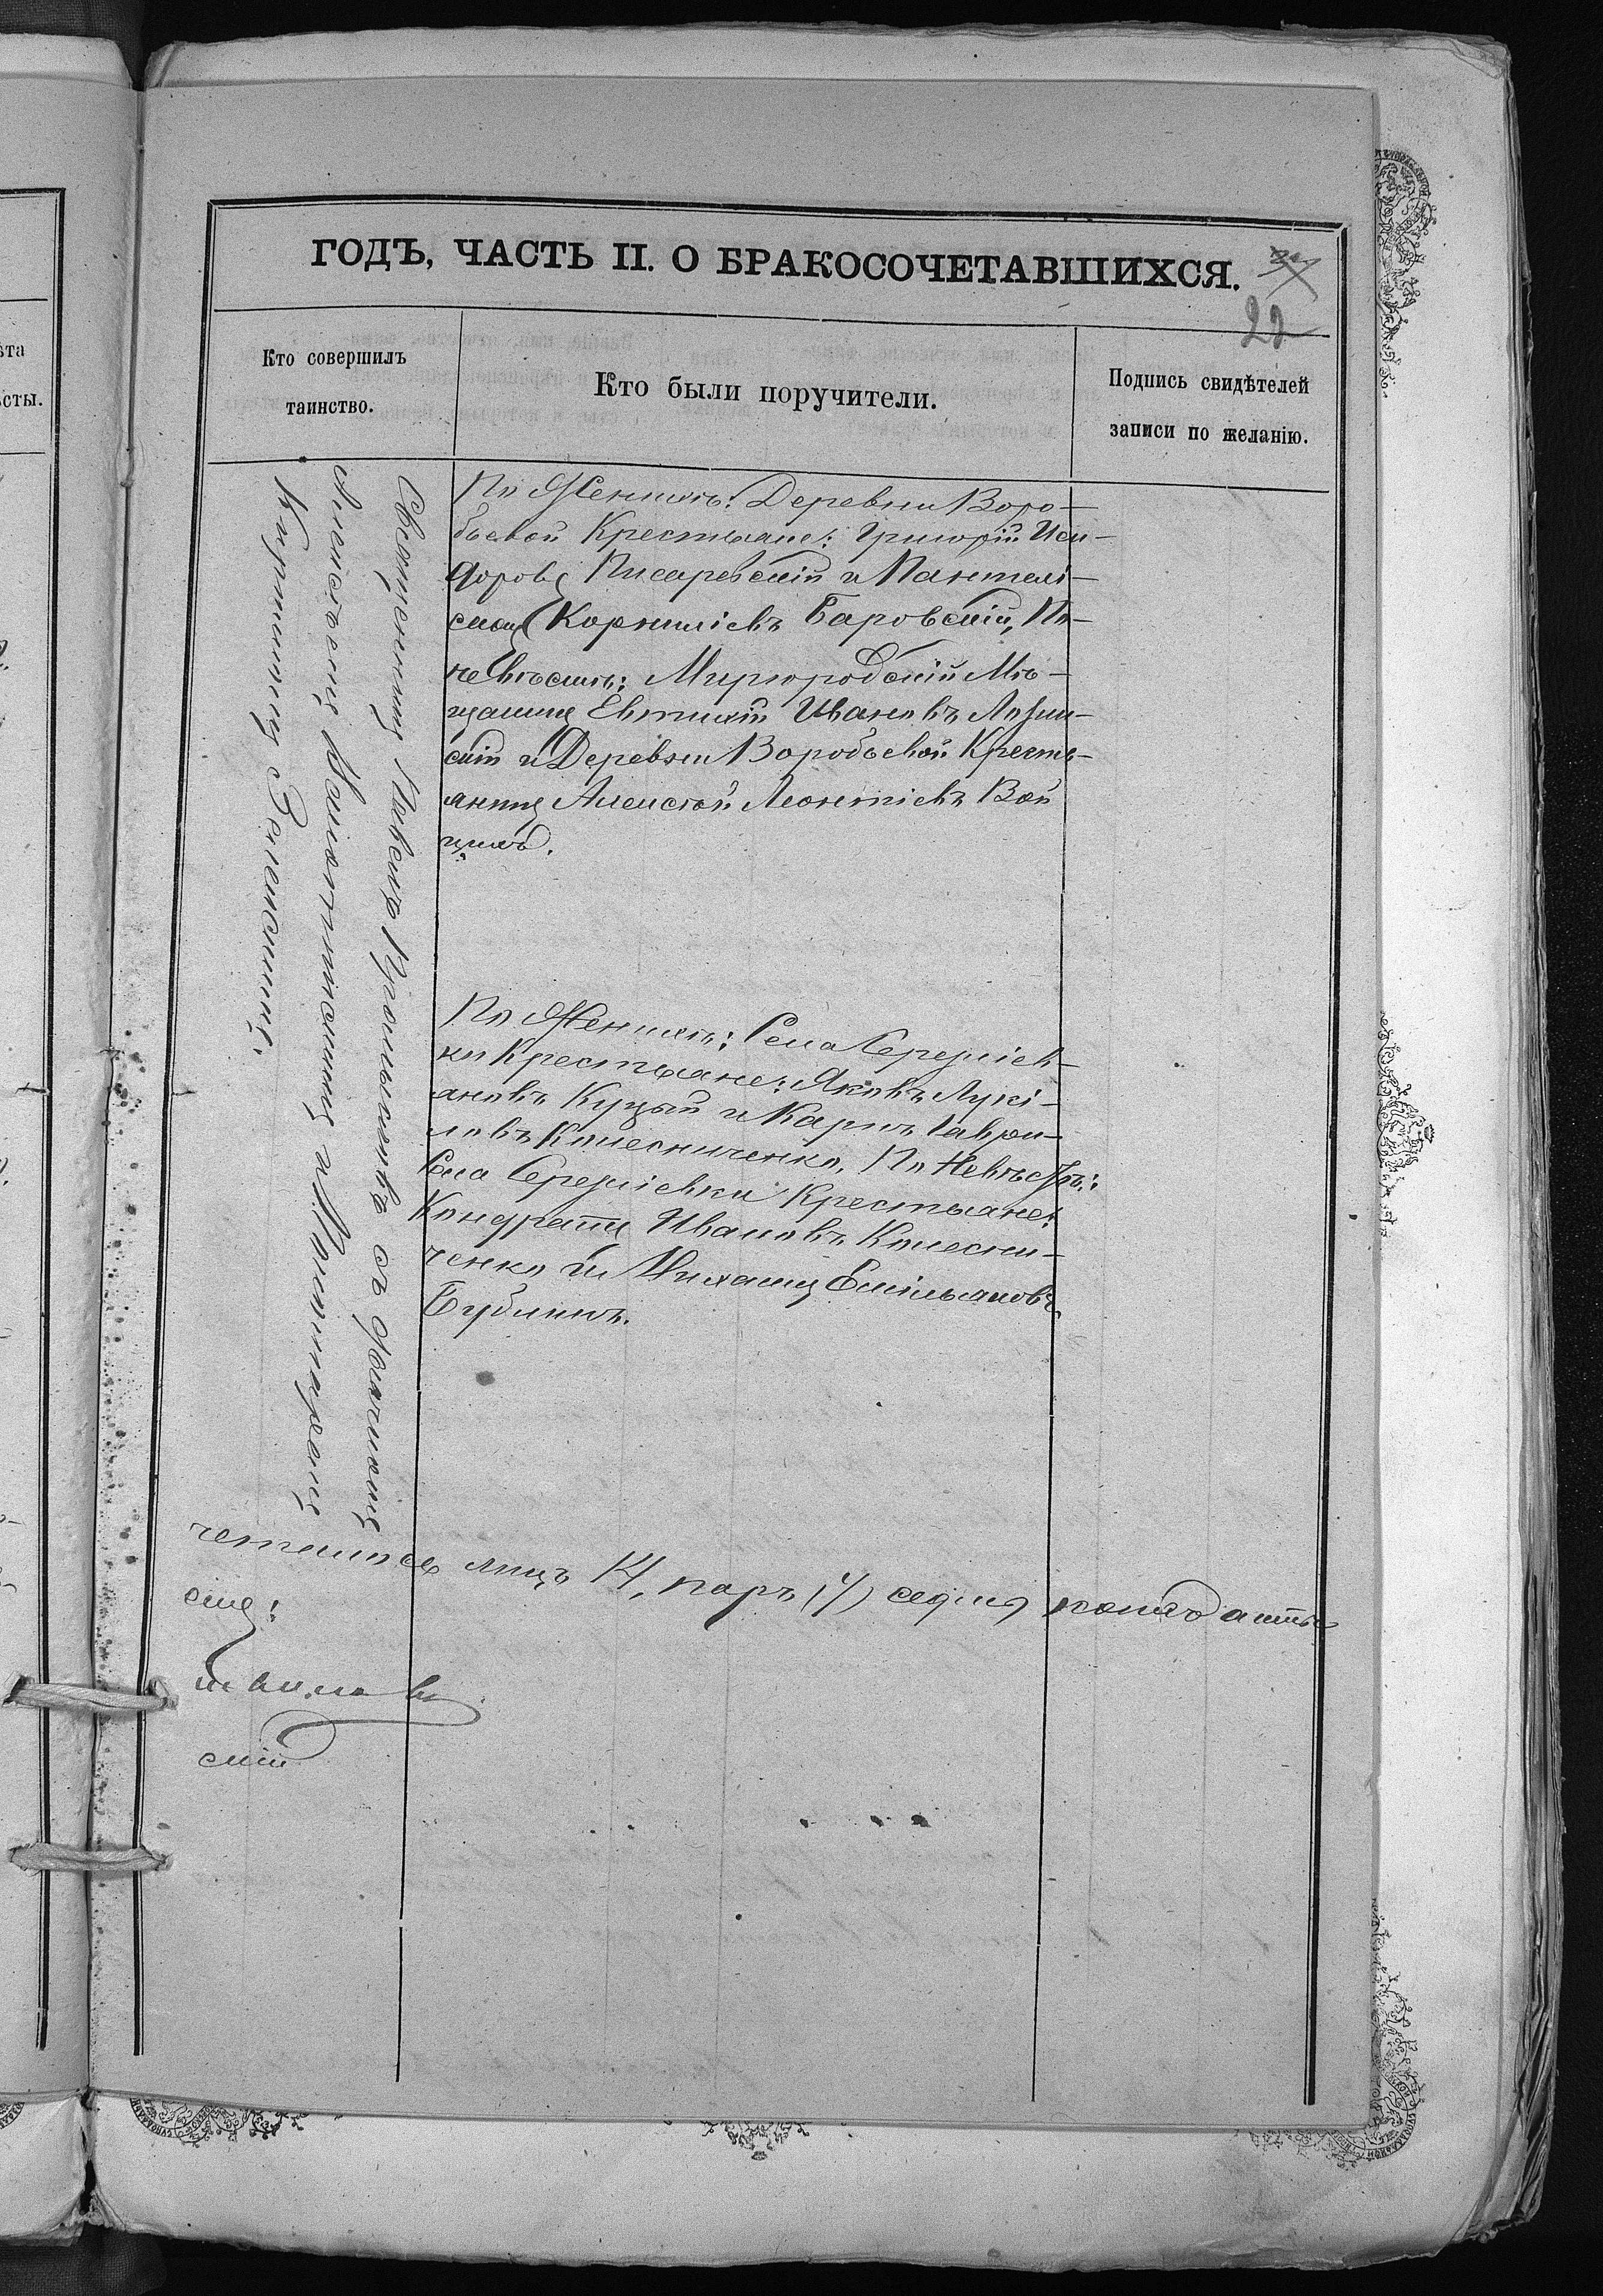 ѣта
ѣсты.
ГОДЪ, ЧАСТЬ II. О БРАКОСОЧЕТАВШИХСЯ.
22
Кто совершилъ
таинство.
Кто были поручители.
Подпись свидѣтелей
записи по желанію.
Священникъ Павелъ съ Дьячкомъ
Алексѣемъ и Пономаремъ
По Женихѣ: Деревни Воро-
бьевой Крестьяне: Григорій Иси-
доровъ Писаревскій и Пантелі-
Корниліевъ Баровскій, По
невѣстѣ: Миргородскій Мѣ-
щанинъ Евтихій Ивановъ Лозин-
скій и Деревни Воробьевой Кресть-
янинъ Алексѣй Леонтіевъ Вой
цихъ.
По Женихѣ: Села Середіев-
ки Крестьяне: Яковъ Лукі-
ановъ Куцый и Карпъ Гаври-
ловъ Колесниченко, По Невѣстѣ:
Села Середіевки Крестьяне:
Кондратій Ивановъ Колесни-
ченко и Михаилъ Емільяновъ
Бубликъ.
четалось лицъ 14, паръ (7) седмь
скій